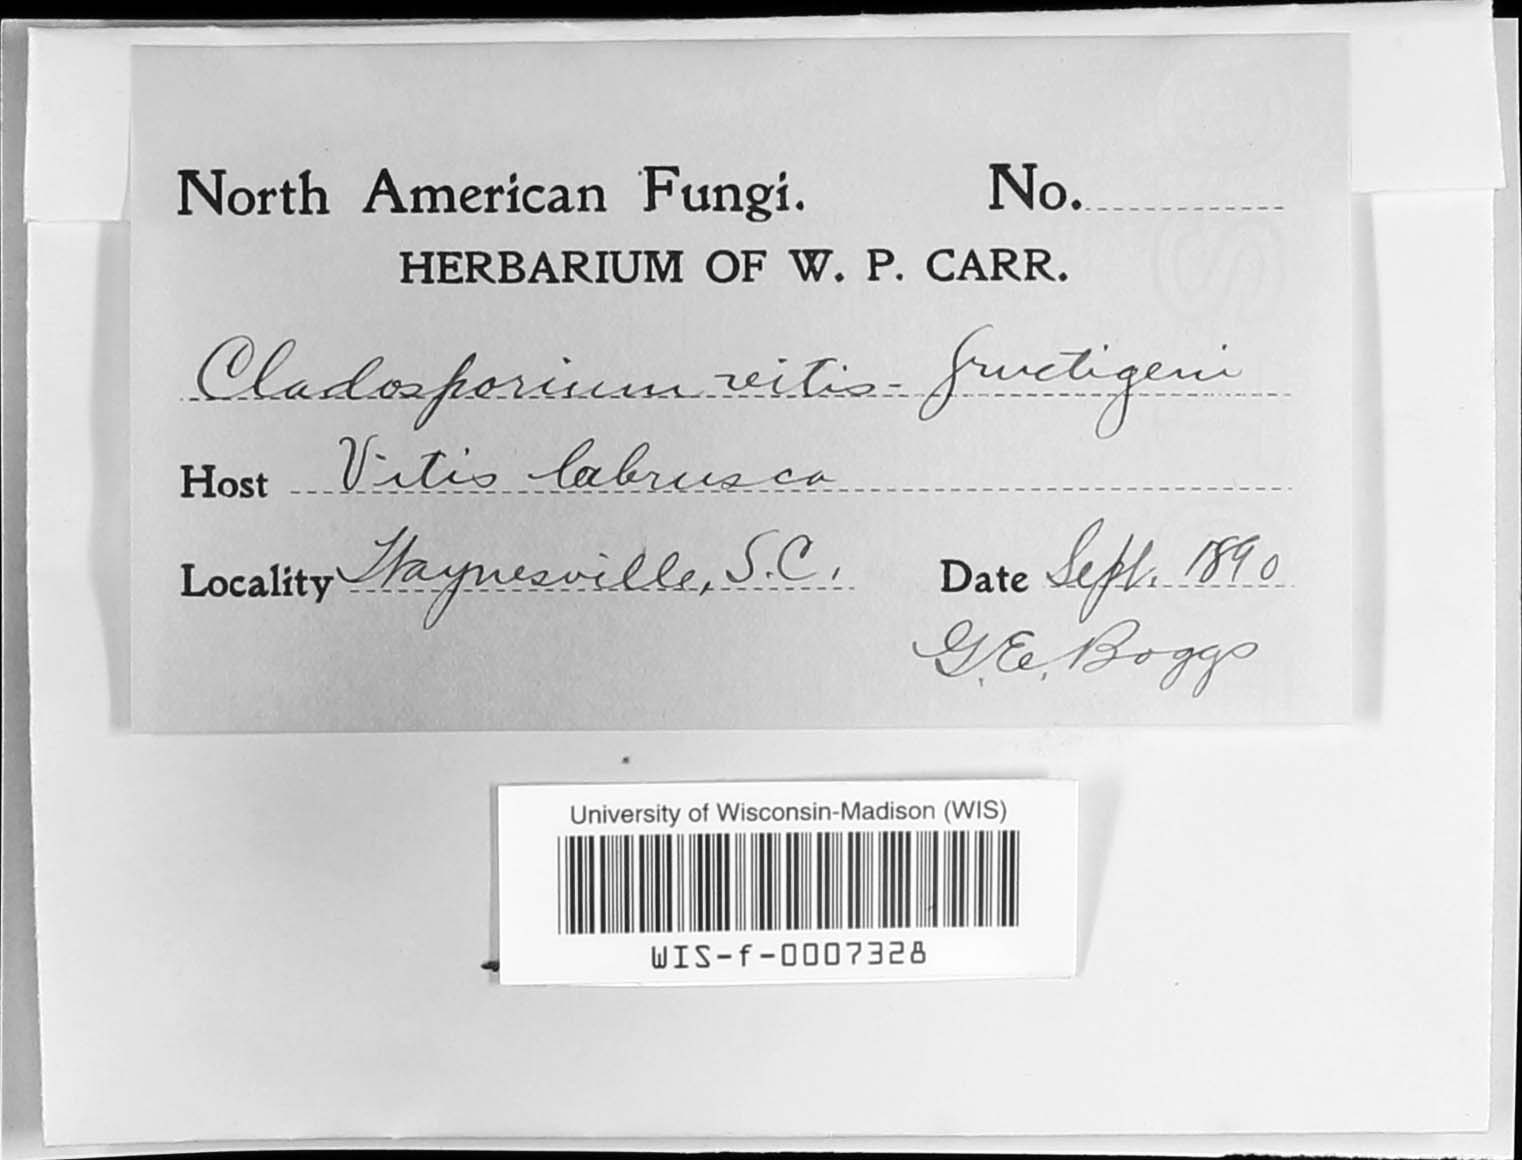 North American Fungi. No.
HERBARIUM OF W. P. CARR.
Cladosporium vitis-fructigeni
Host Vitis labrusca
Locality Waynesville, S.C. Date Sept. 1890
G. E. Boggs
University of Wisconsin-Madison (WIS)
WIS-f-0007328